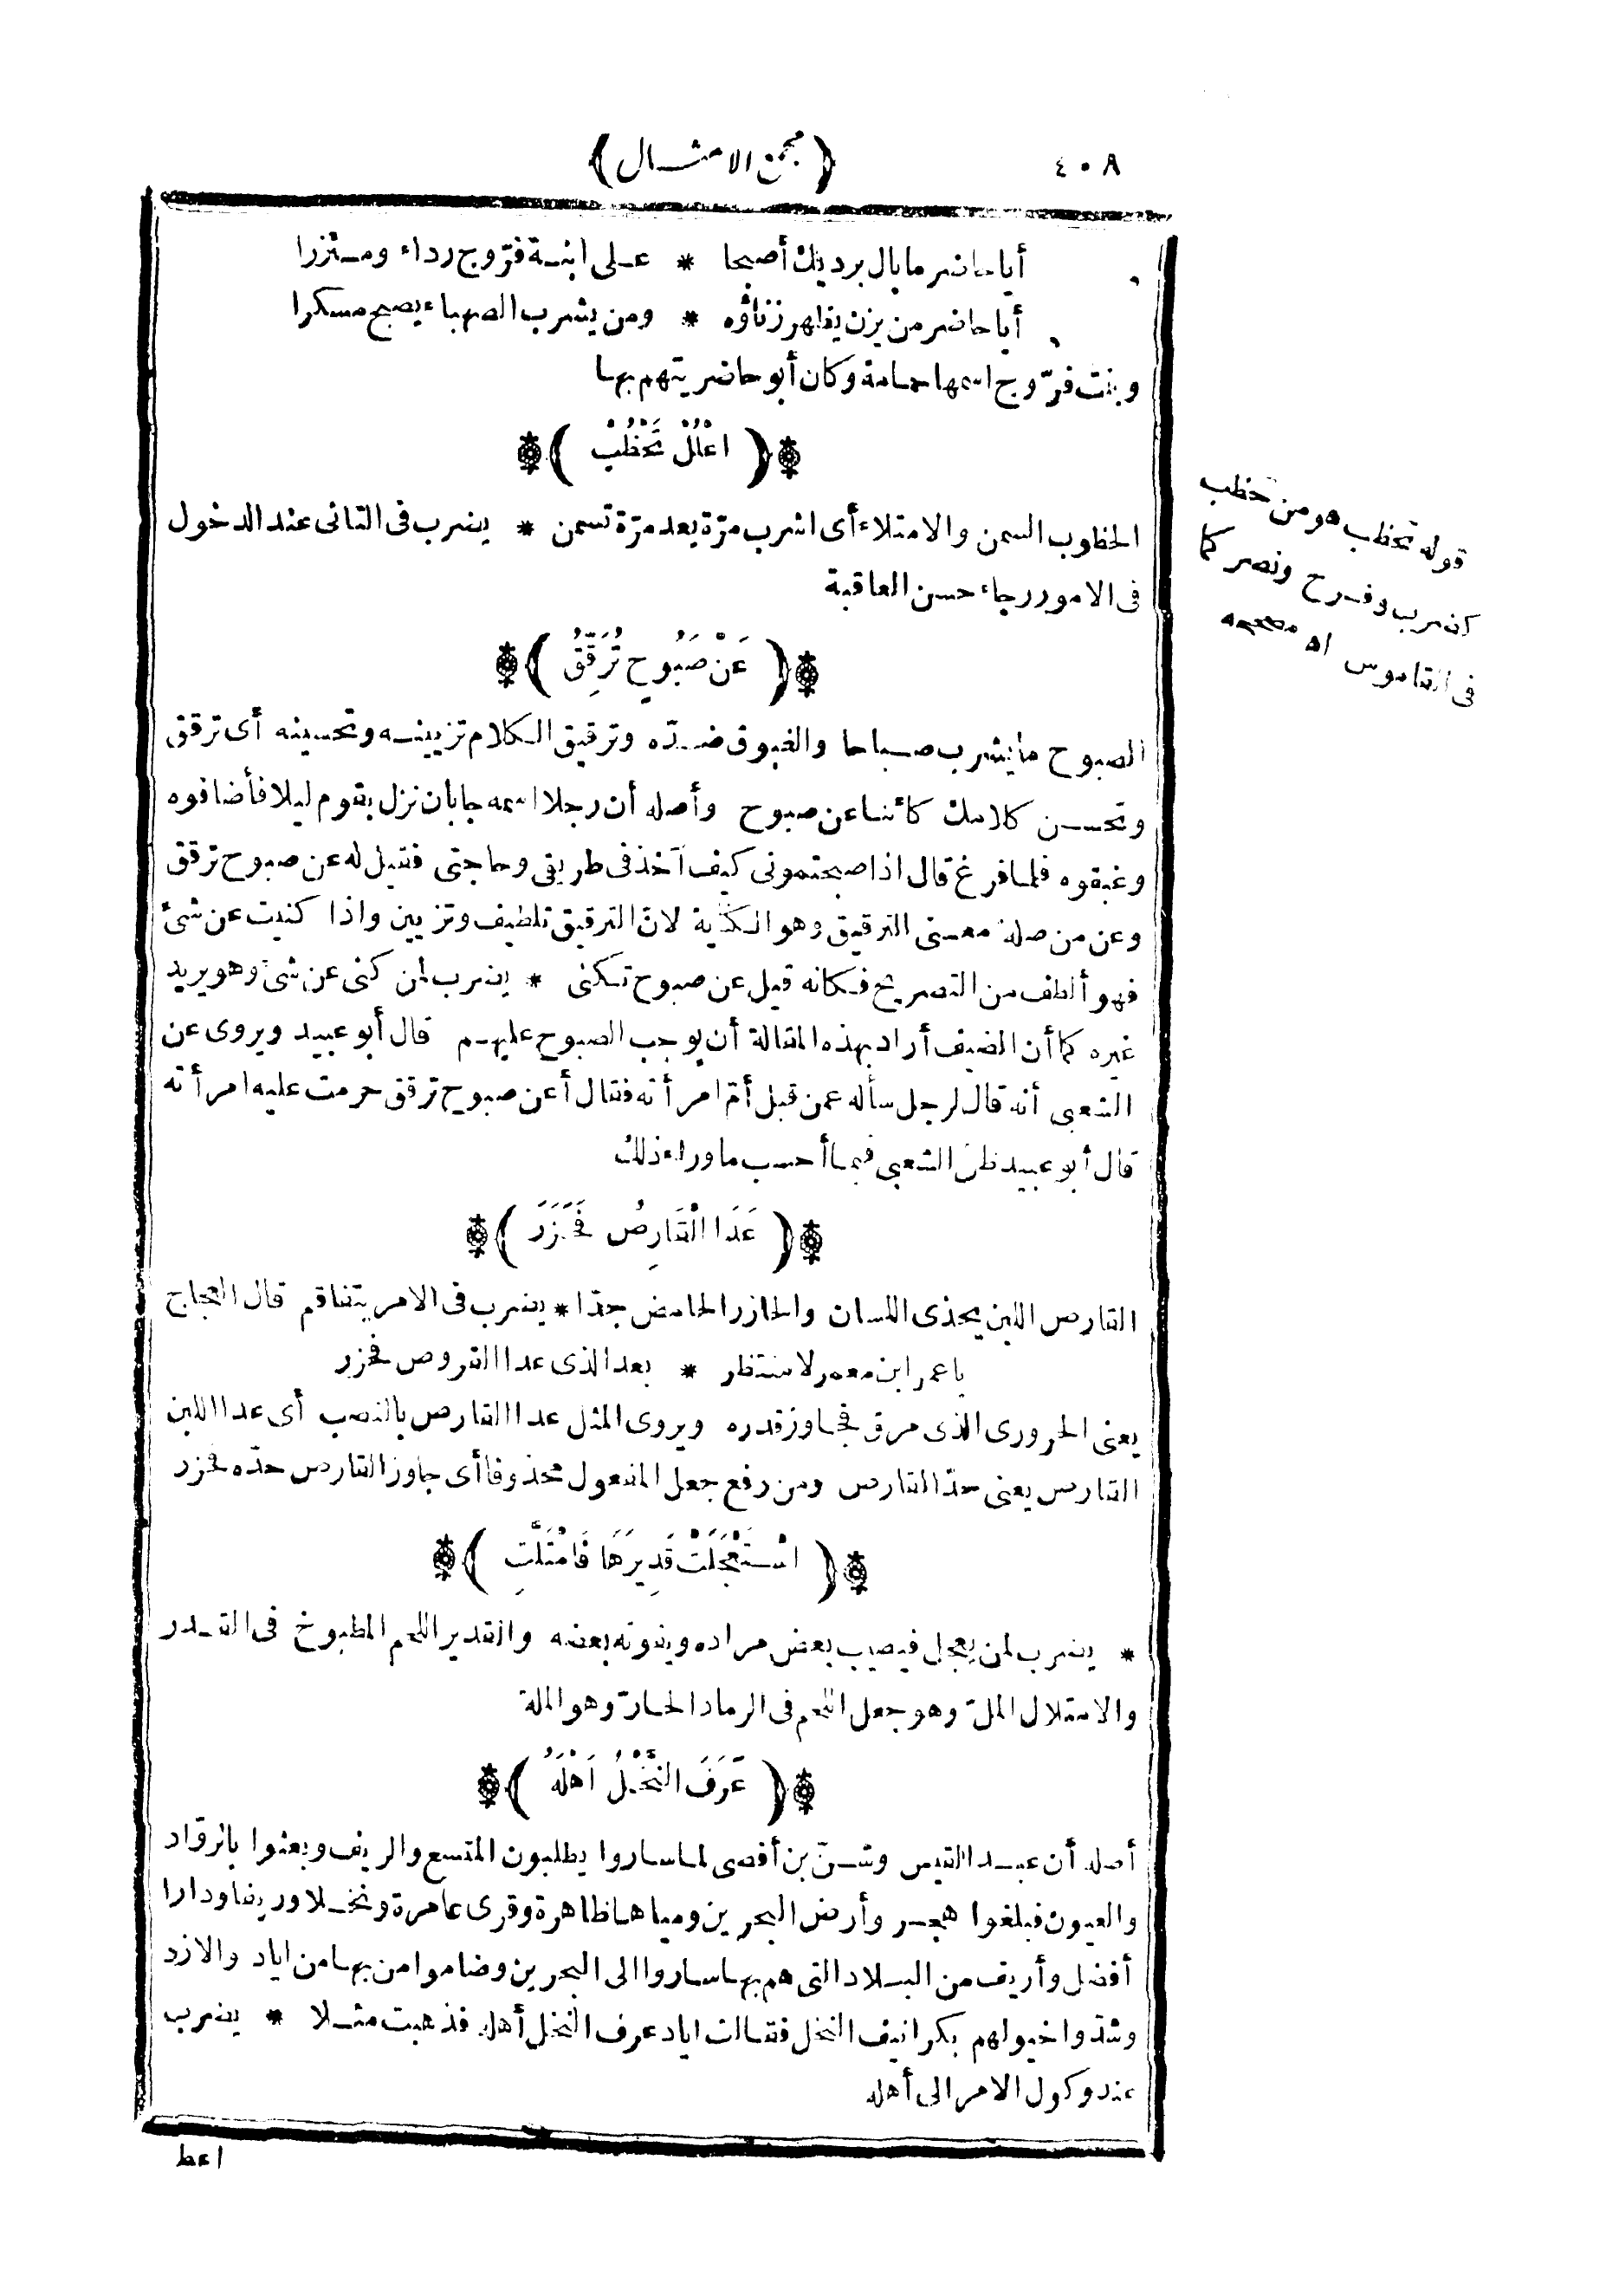 ٤٠٨
(مجمع الامثال)
أيا حاضر ما بال برديك أصبحا * على ابنة فرّوج رداء ومئزرا
أيا حاضر من يزن يظهر زناؤه * ومن يشرب الصهباء يصبح مسكرا
وبنت فرّوج اسمها حمامة وكان أبو حاضر يتهم بها
(اعْلُلْ تَحْظُبْ)
الحظوب السمن والامتلاء أى اشرب مرّة بعد مرّة تسمن * يضرب فى التانى عند الدخول
فى الامور رجاء حسن العاقبة
(عَنْ صَبُوحٍ تُرَقِّقُ)
الصبوح ما يشرب صباحا والغبوق ضدّه وترقيق الكلام تزيينه وتحسينه أى ترقق
وتحسن كلامك كائنا عن صبوح وأصله أن رجلا اسمه جابان نزل بقوم ليلا فأضافوه
وغبقوه فلما فرغ قال اذا صبحتمونى كيف آخذ فى طريقى وحاجتى فقيل له عن صبوح ترقق
وعن من صلة معنى الترقيق وهو الكناية لانّ الترقيق تلطيف وتزيين واذا كنيت عن شئ
فهو ألطف من التصريح فكانه قيل عن صبوح تكنى * يضرب لمن كنى عن شئ وهو يريد
غيره كما أن الضيف أراد بهذه المقالة أن يوجب الصبوح عليهم قال أبو عبيد ويروى عن
الشعبى أنه قال لرجل سأله عمن قبل أمّ امرأته فقال أعن صبوح ترقق حرمت عليه امرأته
قال أبو عبيد ظنّ الشعبى فيما أحسب ما وراء ذلك
(عَدَا الْقَارِصُ فَحَزَرَ)
القارص اللبن يحذى اللسان والحازر الحامض جدّا * يضرب فى الامر يتفاقم قال العجاج
يا عمر ابن معمر لا منتظر * بعد الذى عدا القروص فحزر
يعنى الحرورى الذى مرق فجاوز قدره ويروى المثل عدا القارص بالنصب أى عدا اللبن
القارص يعنى حدّ القارص ومن رفع جعل المفعول محذوفا أى جاوز القارص حدّه فحزر
(اسْتَعْجَلَتْ قَدِيرَهَا فَامْتَلَّتِ)
* يضرب لمن يعجل فيصيب بعض مراده ويفوته بعضه والقدير اللحم المطبوخ فى القدر
والامتلال الملّ وهو جعل اللحم فى الرماد الحارّ وهو الملة
(عَرَفَ النَّخْلُ اَهْلَهُ)
أصله أن عبد القيس وشنّ بن أفصى لما ساروا يطلبون المتسع والريف وبعثوا بالروّاد
والعيون فبلغوا هجر وأرض البحرين ومياها ظاهرة وقرى عامرة ونخلا وريفا ودارا
أفضل وأريف من البلاد التى هم بها ساروا الى البحرين وضاموا من بها من اياد والازد
وشدّوا خيولهم بكرانيف النخل فقالت اياد عرف النخل أهله فذهبت مثلا * يضرب
عند وكول الامر الى أهله
اعط
قوله تحظب هو من حظب
كضرب وفرح ونصر كما
فى القاموس اه مصححه